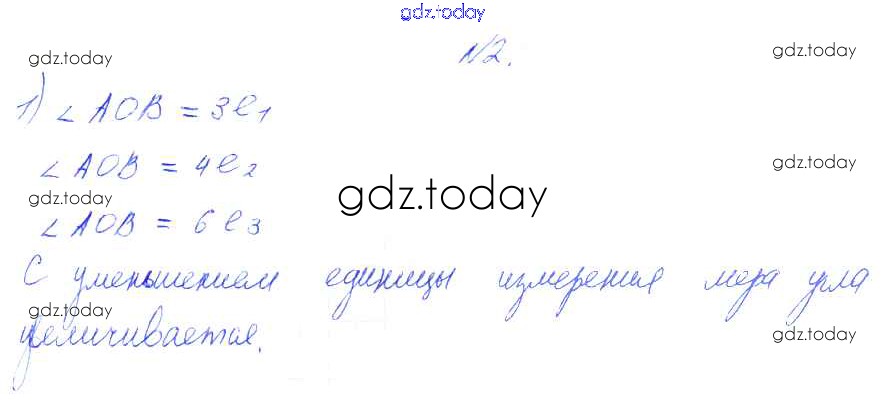 gdz.today
№2.
gdz.today
gdz.today
1) ∠AOB = 3e₁
∠AOB = 4e₂
gdz.today
gdz.today
gdz.today
∠AOB = 6e₃
С уменьшением единицы измерения мера угла
gdz.today
увеличивается.
gdz.today